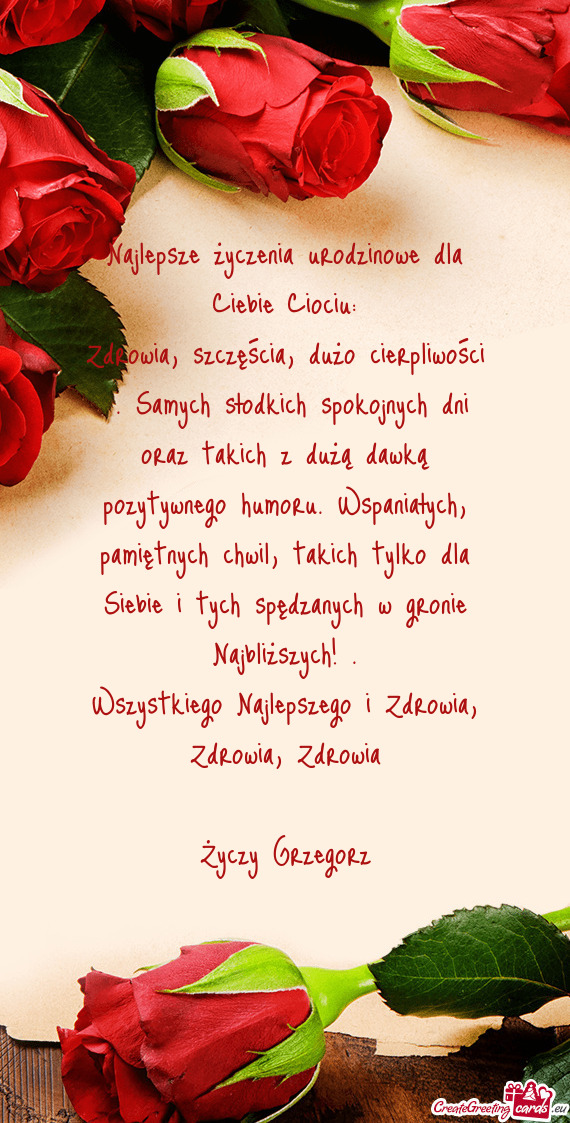 Najlepsze życzenia urodzinowe dla
Ciebie Ciociu:
Zdrowia, szczęścia, dużo cierpliwości
. Samych słodkich spokojnych dni
oraz takich z dużą dawką
pozytywnego humoru. Wspaniałych,
pamiętnych chwil, takich tylko dla
Siebie i tych spędzanych w gronie
Najbliższych! .
Wszystkiego Najlepszego i Zdrowia,
Zdrowia, Zdrowia
Życzy Grzegorz
CreateGreeting cards .eu